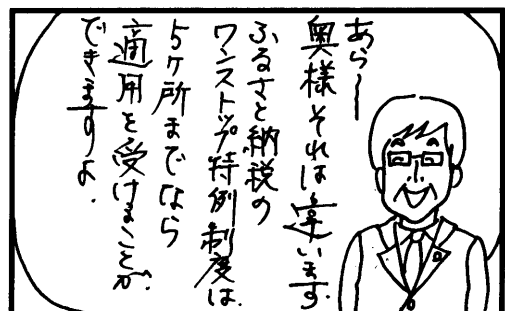 あら〜
奥様それは違います.
ふるさと納税の
ワンストップ特例制度は.
5ヶ所までなら
適用を受けることが.
できますよ.